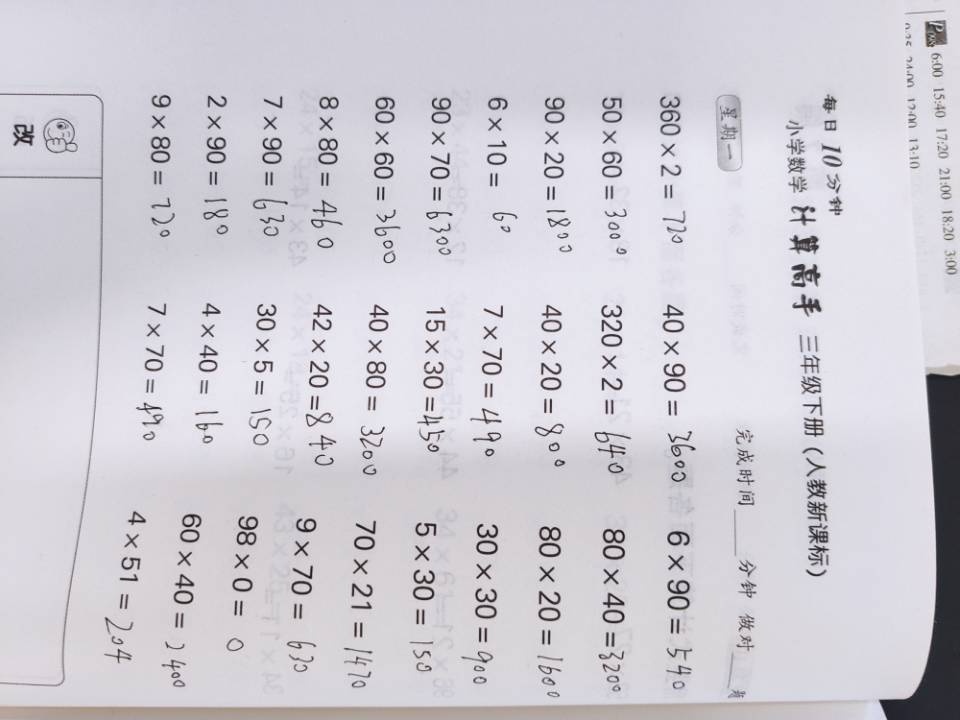 6:00 15:40 17:20 21:00 18:20 3:00
24:00 12:00 13:10
每日10分钟
小学数学 计算高手 三年级下册(人教新课标)
星期一 完成时间____分钟 做对____题
360×2=720 40×90=3600 6×90=540
50×60=3000 320×2=640 80×40=3200
90×20=1800 40×20=800 80×20=1600
6×10=60 7×70=490 30×30=900
90×70=6300 15×30=450 5×30=150
60×60=3600 40×80=3200 70×21=1470
8×80=460 42×20=840 9×70=630
7×90=630 30×5=150 98×0=0
2×90=180 4×40=160 60×40=2400
9×80=720 7×70=490 4×51=204
改